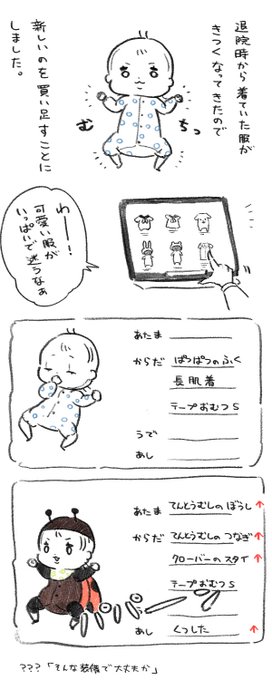 退院時から着ていた服が
きつくなってきたので
新しいのを買い足すことに
しました。
むちっ
わー！
可愛い服が
いっぱいで迷うなぁ
あたま
からだ ぱつぱつのふく
長肌着
テープおむつS
うで
あし
あたま てんとうむしのぼうし↑
からだ てんとうむしのつなぎ↑
クローバーのスタイ↑
テープおむつS
あし くつした↑
???「そんな装備で大丈夫か」